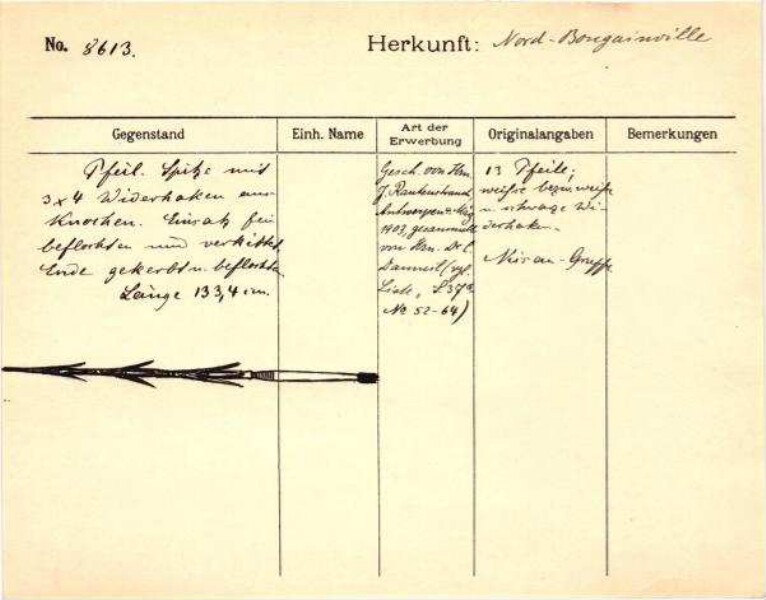 No. 8613.
Herkunft: Nord-Bougainville
Gegenstand
Einh. Name
Art der Erwerbung
Originalangaben
Bemerkungen
Pfeil. Spitze mit
3 x 4 Widerhaken aus
Knochen. Einsatz fein
beflochten und verkittet
Ende gekerbt u. beflochten
Länge 133,4 cm.
Gesch. von Hrn.
J. Rautenstrauch
Antwerpen
1903, gesammelt
von Hrn. Dr.
(vgl.
Liste, S 37
No 52-64)
13 Pfeile;
weiße bezw. weiße
u. schwarze Wi-
derhaken.